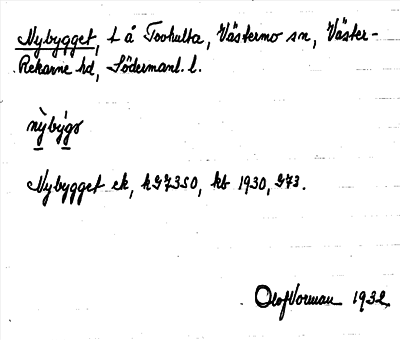 Nybygget, t å Tookulta, Västermo sn, Väster-
Rekarne hd, Södermanl. l.
nỳbýgə
Nybygget ek, kb 1930, 973.
Olof Vorman 1932.